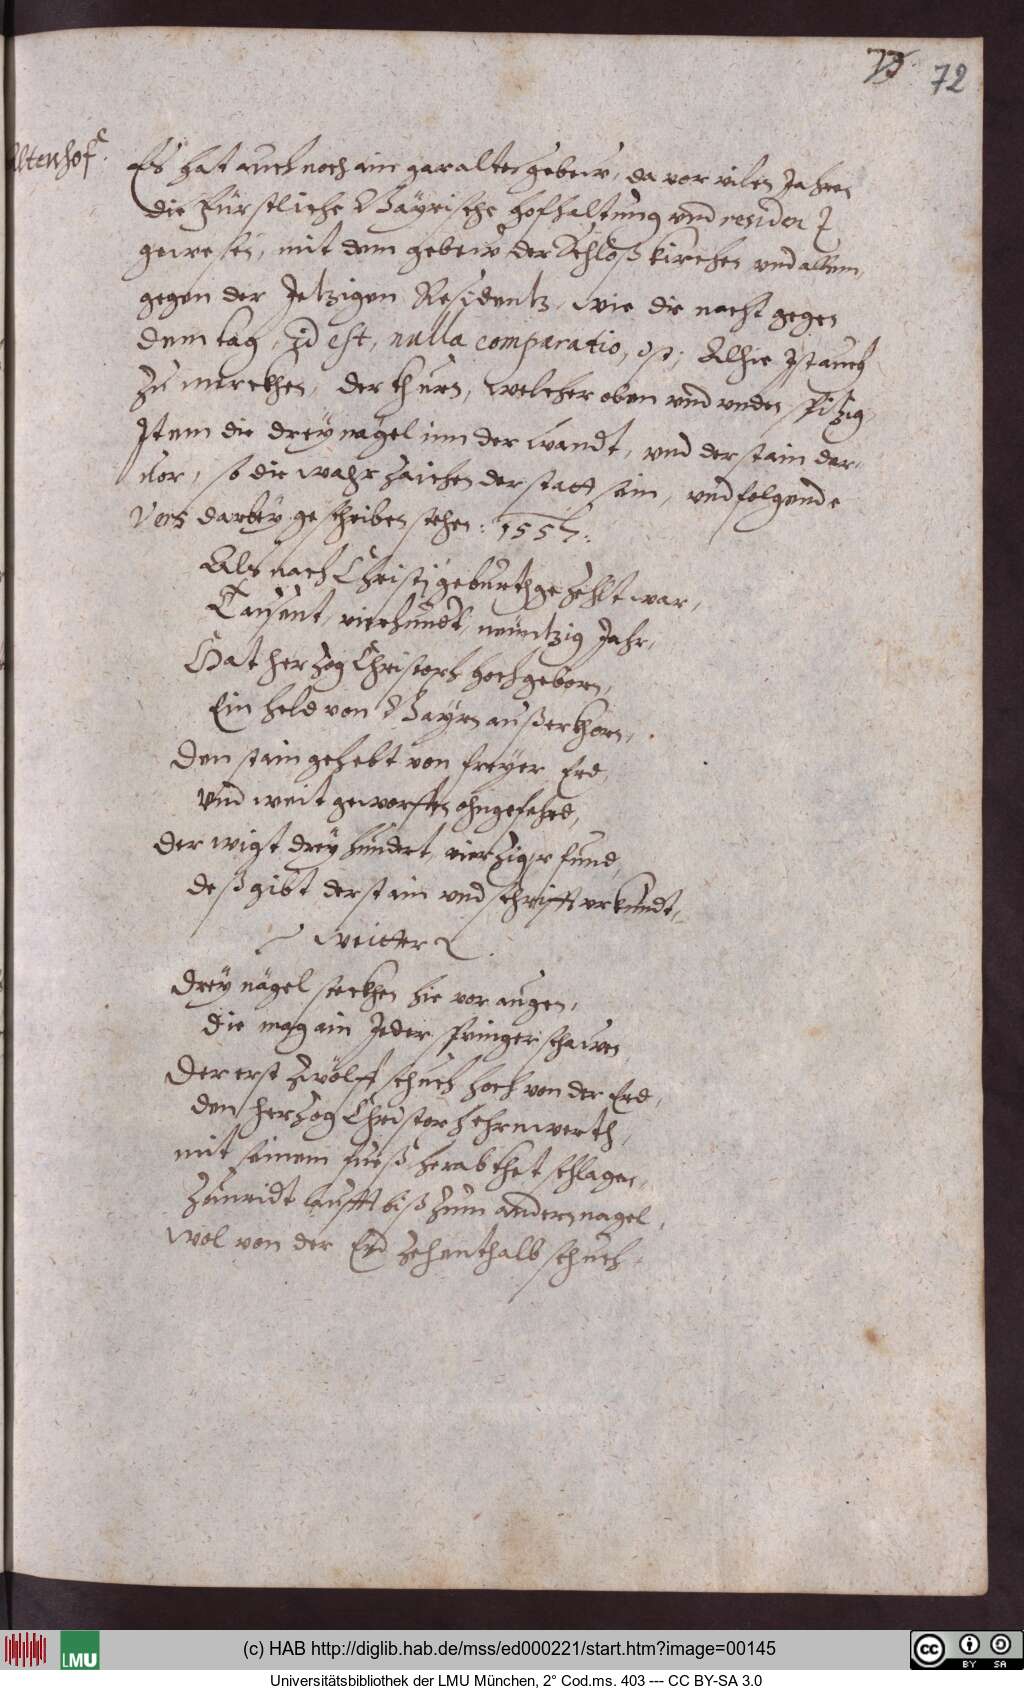 73 72
Altenhof.
Es hat auch noch ain gar altes gebeuw, da vor vilen Jahren
die Fürstliche Bayrische hofhaltung und residenz
gewesen, mit dem gebeuw der Schloßkirchen und allem,
gegen der Jetzigen Residentz, wie die nacht gegen
dem tag, id est, nulla comparatio, Alhie Ist auch
zu merckhen, der thurn, welcher oben und unden spizig,
Item die drey nägel inn der wandt, und der stain dar-
vor, so die wahrzaichen der statt sein, und folgende
Vers darbey geschriben stehen: 1557:
Als nach Christi geburth gezehlt war,
Tausent, vierhundt, neuntzig Jahr,
Hat herzog Christoph hochgeborn,
Ein held von Bayrn außerkhorn,
den stain gehebt von freyer Erd,
Und weit geworffen ohngefehrd,
der wigt dreyhundert, vierzig pfund,
deß gibt der stain und schrifft urkundt,
weitter
Drey nägel steckhen hie vor augen,
die mag ain Jeder springer schauwen
Der erst zwölff schuch hoch von der Erd,
den herzog Christoph ehrnwerth,
mit seinem fueß herab thet schlagen,
luefft biß zum andern nagel,
Wol von der Erd zehenthalb schuch
(c) HAB http://diglib.hab.de/mss/ed000221/start.htm?image=00145
LMU
CC BY SA
Universitätsbibliothek der LMU München, 2° Cod.ms. 403 --- CC BY-SA 3.0